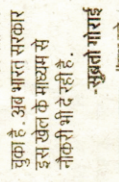 चुका है. अब भारत सरकार
इस खेल के माध्यम से
नौकरी भी दे रही है.
-सुब्रतो गोराई